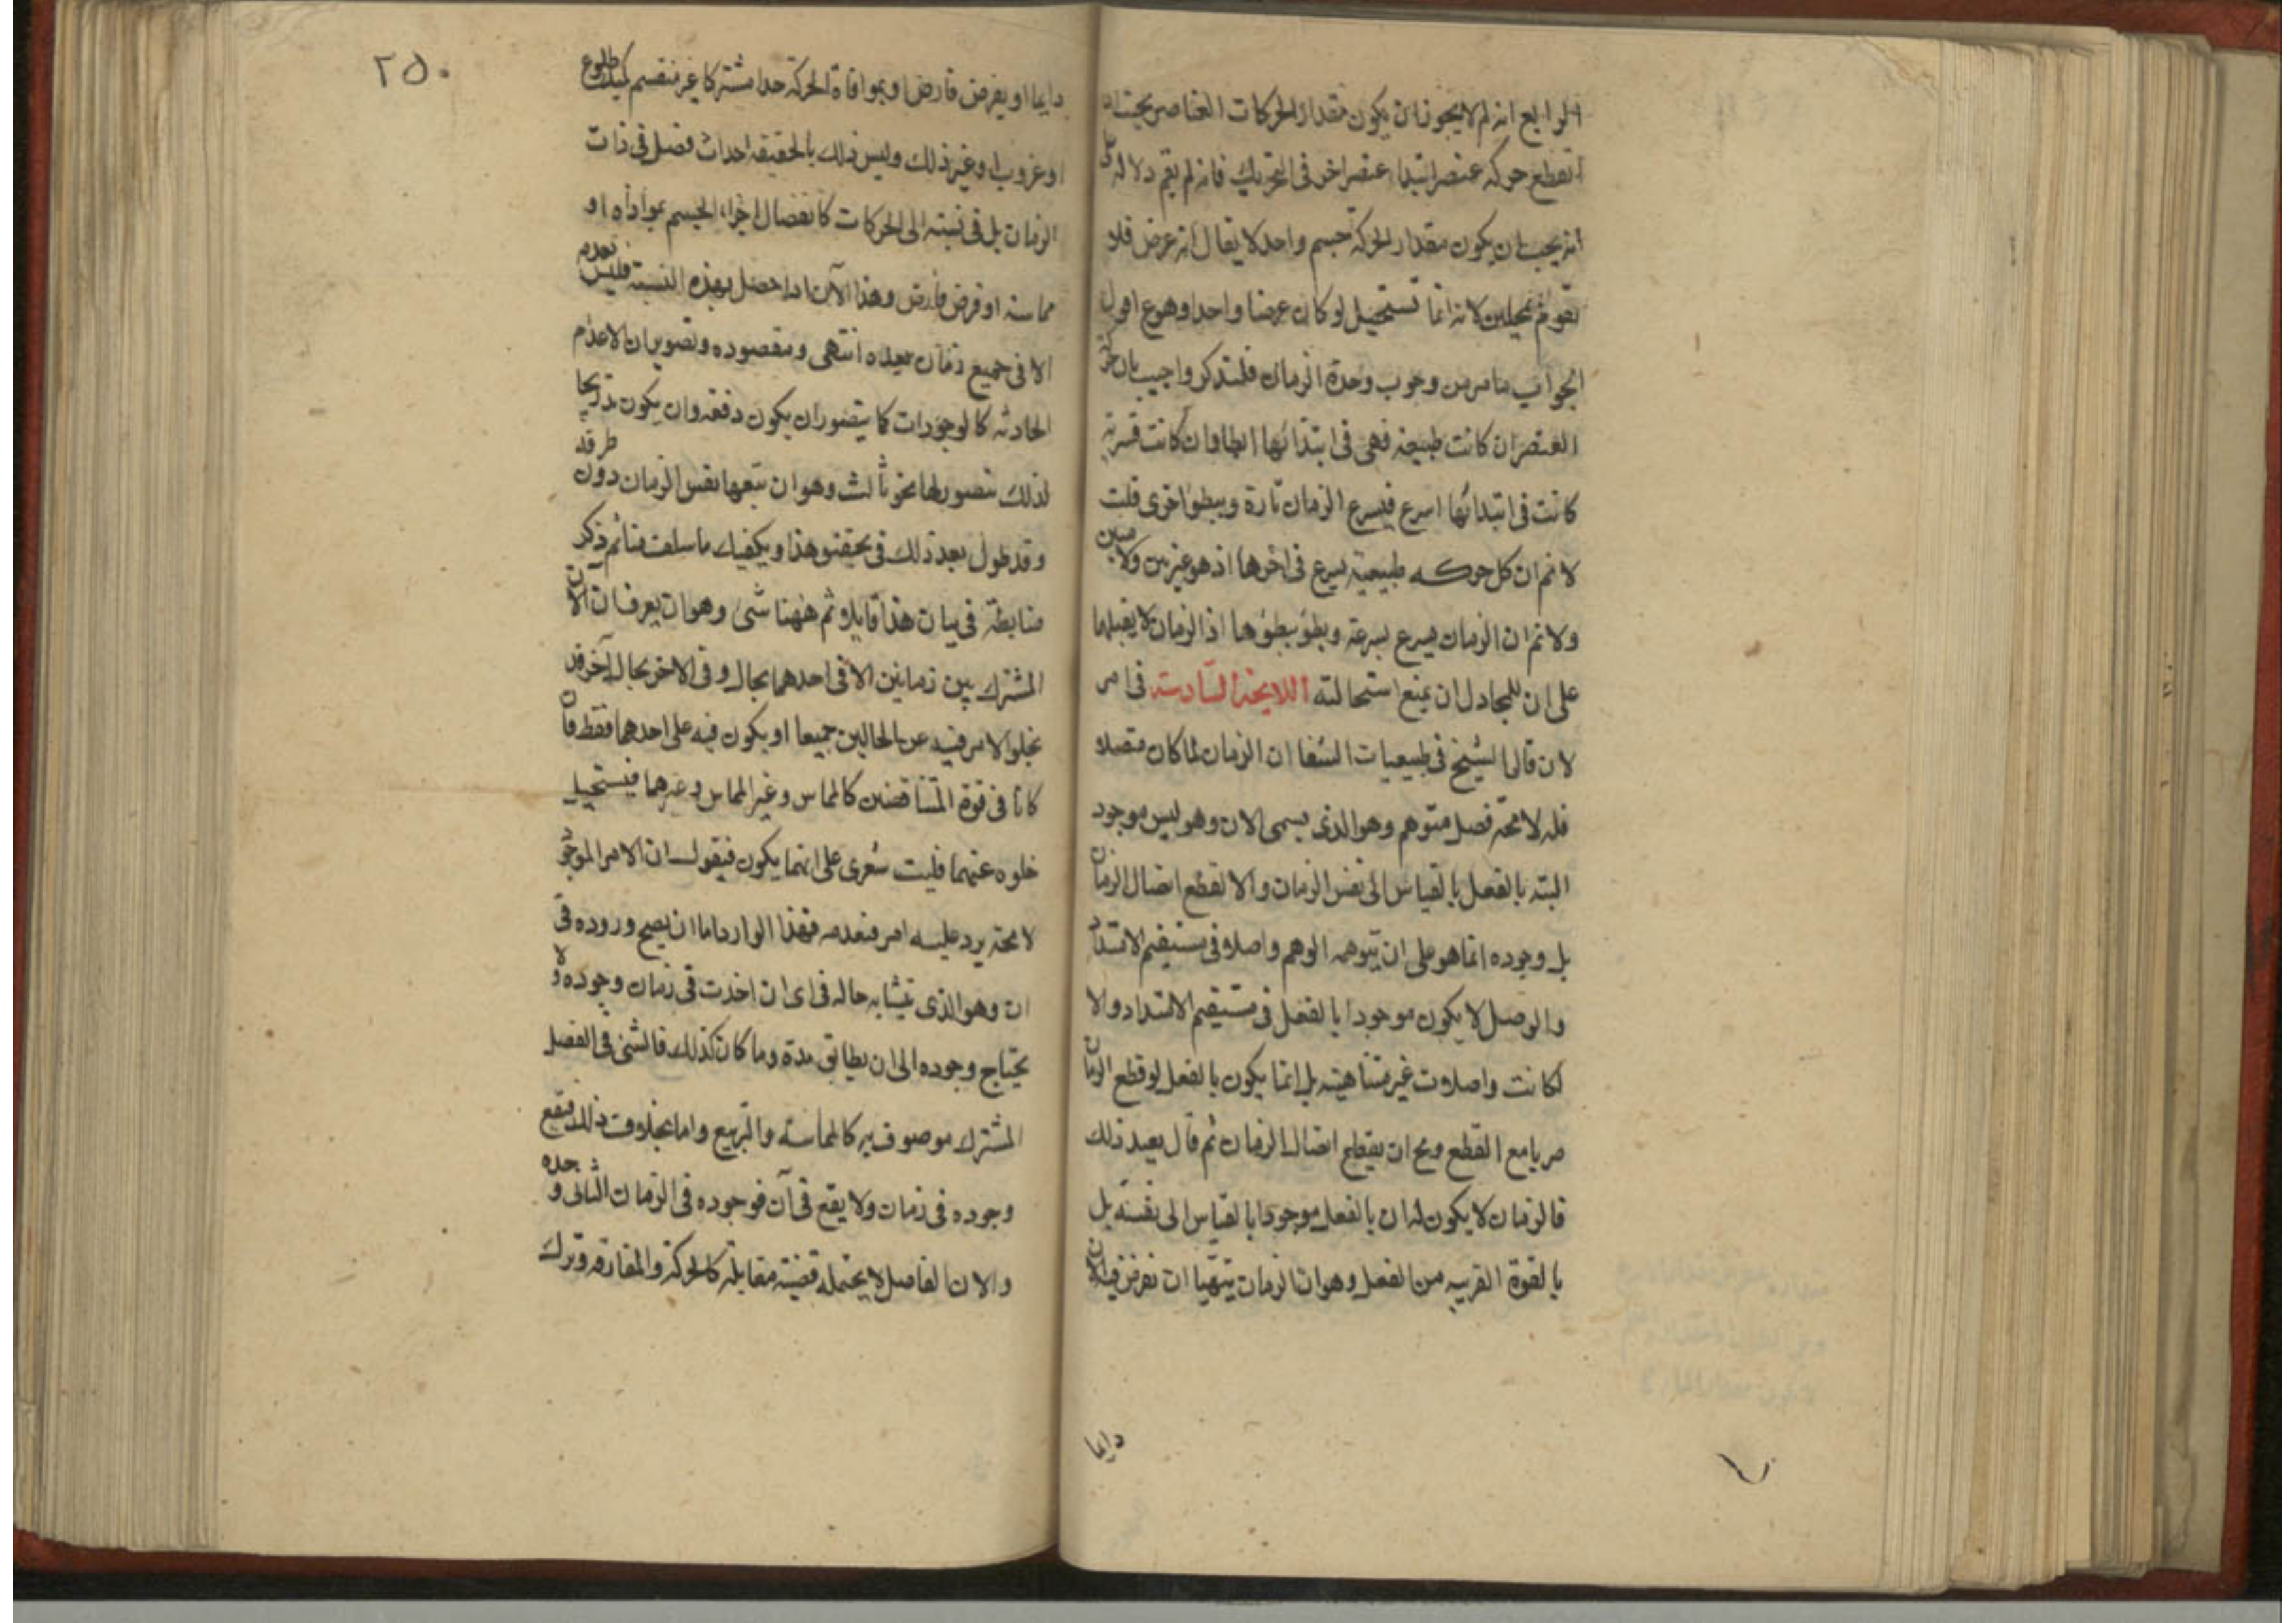 الرابع انه لم لا يجوز ان يكون مقدار الحركات العناصر بحيث ان
انقطع حركه عنصر ابتداء عنصر اخر فى التحريك فانه لم يقم دلاله على
انه يجب ان يكون مقدار الحركة جسم واحد لا يقال انه عرض فلا
تقوم بمحلين لانه انما تستحيل لو كان عرضا واحدا وهو ع اقول
الجواب ما مر من وجوب وحدة الزمان فلتذكر واجيب بان حركة
العنصر ان كانت طبيعية فهى فى ابتدائها ابطا وان كانت قسرية
كانت فى ابتدائها اسرع فيسرع الزمان تارة ويبطؤ اخرى قلت
لا نم ان كل حركه طبيعية يسرع فى اخرها اذ هو غير بين ولا مبين
ولا نم ان الزمان يسرع بسرعة وبطؤ ببطؤها اذ الزمان لا يقبلهما
على ان للمجادل ان يمنع استحالته اللايحة السادسة فى امر
لان قال الشيخ فى طبيعيات الشفا ان الزمان لما كان متصلا
فله لا محة فصل متوهم وهو الذى يسمى الان وهو ليس موجود
البته بالفعل بالقياس الى نفس الزمان والا لقطع اتصال الزمان
بل وجوده انما هو على ان يتوهمه الوهم واصلا فى مستقيم الامتداد
والوصل لا يكون موجودا بالفعل فى مستقيم الامتداد والا
لكانت واصلات غير متناهية بل انما يكون بالفعل لو قطع الزمان
ضربا مع القطع ومح ان يقطع اتصال الزمان ثم قال بعيد ذلك
فالزمان لا يكون له ان بالفعل موجودا بالقياس الى نفسه بل
بالقوة القريبه من الفعل وهو ان الزمان يتهيا ان نفرض فيه الان
دايما
٢٥٠
دايما او بفرض فارض او بموافاة الحركة حدا مشتركا غير منقسم كمبدا طلوع
او غروب او غير ذلك وليس ذلك بالحقيقه احداث فصل فى ذات
الزمان بل فى نسبته الى الحركات كانفصال اجزاء الجسم بموازاه او
مماسه او فرض فارض وهذا الآن اذا حصل بهذه النسبة فليس عدمه
الا فى جميع زمان بعده انتهى ومقصوده وتصوير ان الاعدام
الحادثه كالوجودات كما يتصور ان يكون دفعه وان يكون تدريجا
لذلك يتصور لها نحو ثالث وهو ان تتبعها نفس الزمان دون طرفه
وقد طول بعد ذلك فى تحقيق هذا ويكفيك ما سلف منا ثم ذكر
ضابطة فى بيان هذا قايلا ثم ههنا شى وهو ان يعرف ان الان
المشترك بين زمانين الا فى احدهما بحال وفى الاخر بحال آخر قد
يخلو الامر فيه عن الحالين جميعا او يكون فيه على احدهما فقط فان
كانا فى قوة المتناقضين كالمماس وغير المماس وغيرهما فيستحيل
خلوه عنهما فليت شعرى على ايهما يكون فيقول ان الامر الموجود
لا محة يرد عليه امر فنعدمه فهذا الوارد اما ان يصح وروده فى
ان وهو الذى يتشابه حاله فى اى ان اخذت فى زمان وجوده ولا
يحتاج وجوده الى ان يطابق مدة وما كان كذلك فالشى فى الفصل
المشترك موصوف به كالمماسة والتربيع واما بخلاف ذلك فيقع
وجوده فى زمان ولا يقع فى آن فوجوده فى الزمان الثانى وحده
والان الفاصل لا يحتمله قضية مقابله كالحركة والمفارقه وترك